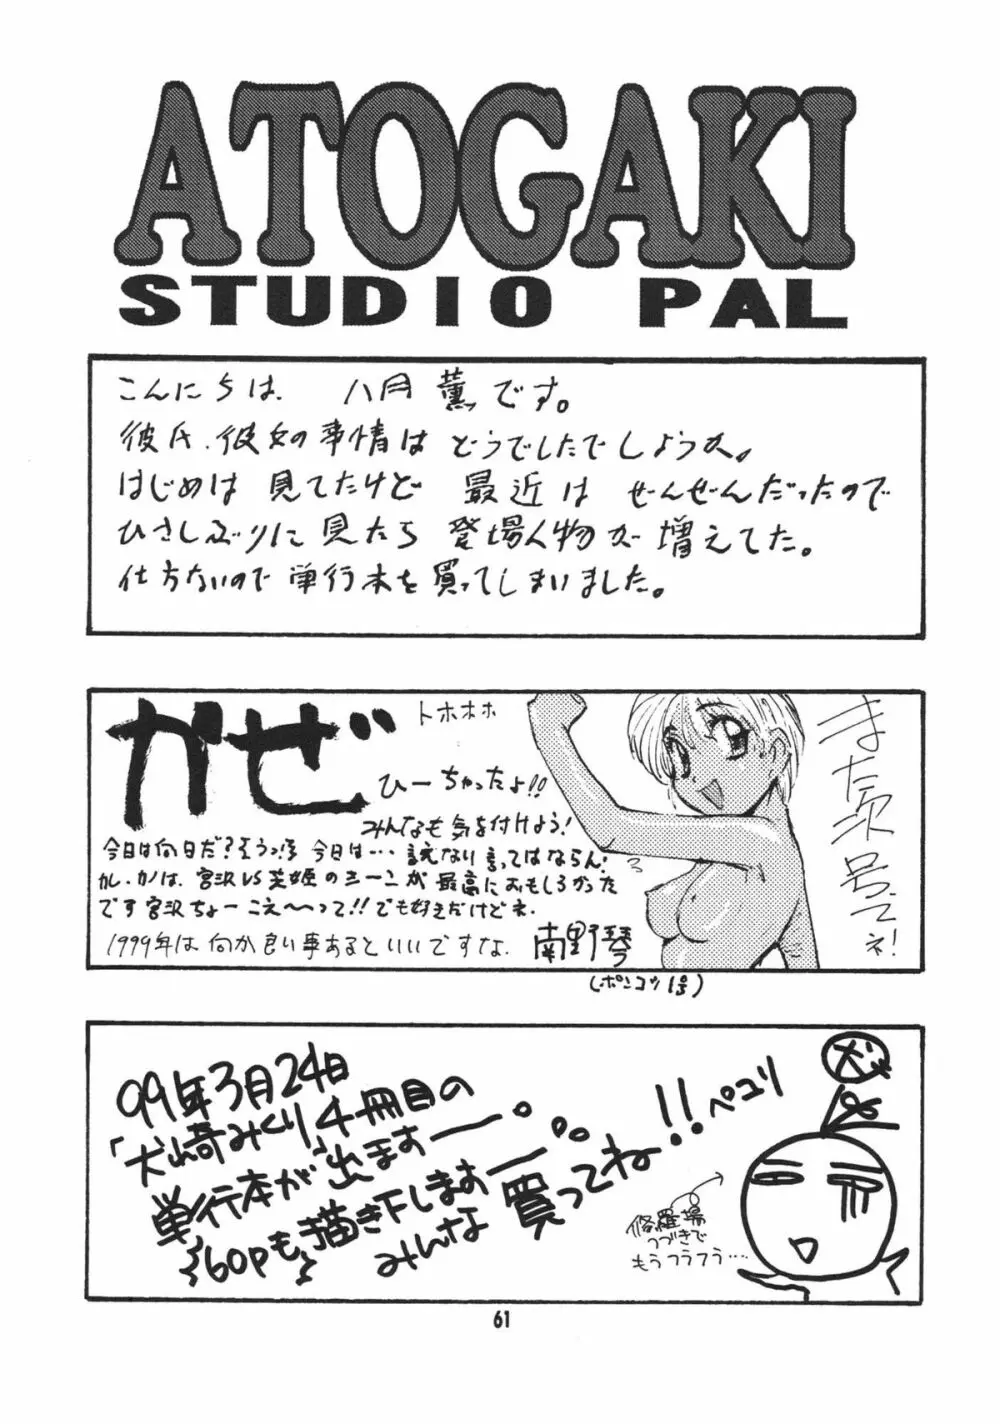 ATOGAKI
STUDIO PAL
こんにちは 八月 薫です。
彼氏.彼女の事情は どうでしたでしょうか。
はじめは 見てたけど 最近は ぜんぜんだったので
ひさしぶりに 見たら 登場人物が 増えてた。
仕方ないので 単行本を買ってしまいました。
かぜ
トホホホ
ひーちゃったよ!!
みんなも気を付けよう!
今日は何日だ?そうっ!3 今日は… 言えない言ってはならん!
カレ・カノは、宮沢VS芙姫のシーンが最高におもしろかった
です 宮沢ちょーこえ〜〜って!!でも好きだけどネ.
1999年は何か良い事あるといいですな. 南野琴
(ポンコツ1号)
また次号でネ!
99年3月24日
「犬崎みくり」4冊目の
単行本が出ますー。
60pも描き下しますー。。
みんな買ってね!!ペコリ
犬
修羅場
つづきで
もうフラフラ…
61